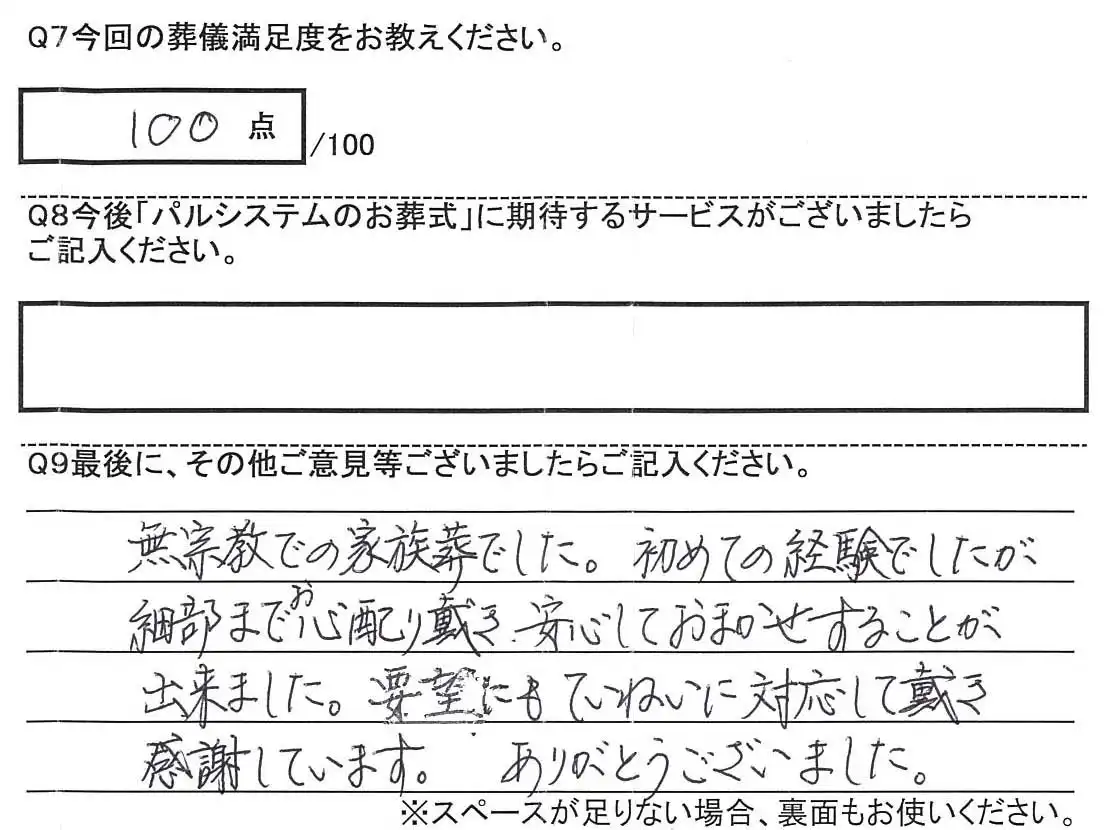 Q7今回の葬儀満足度をお教えください。
100 点 /100
Q8今後「パルシステムのお葬式」に期待するサービスがございましたら
ご記入ください。
Q9最後に、その他ご意見等ございましたらご記入ください。
無宗教での家族葬でした。初めての経験でしたが
細部までお心配り戴き、安心しておまかせすることが
出来ました。要望にもていねいに対応して戴き
感謝しています。 ありがとうございました。
※スペースが足りない場合、裏面もお使いください。